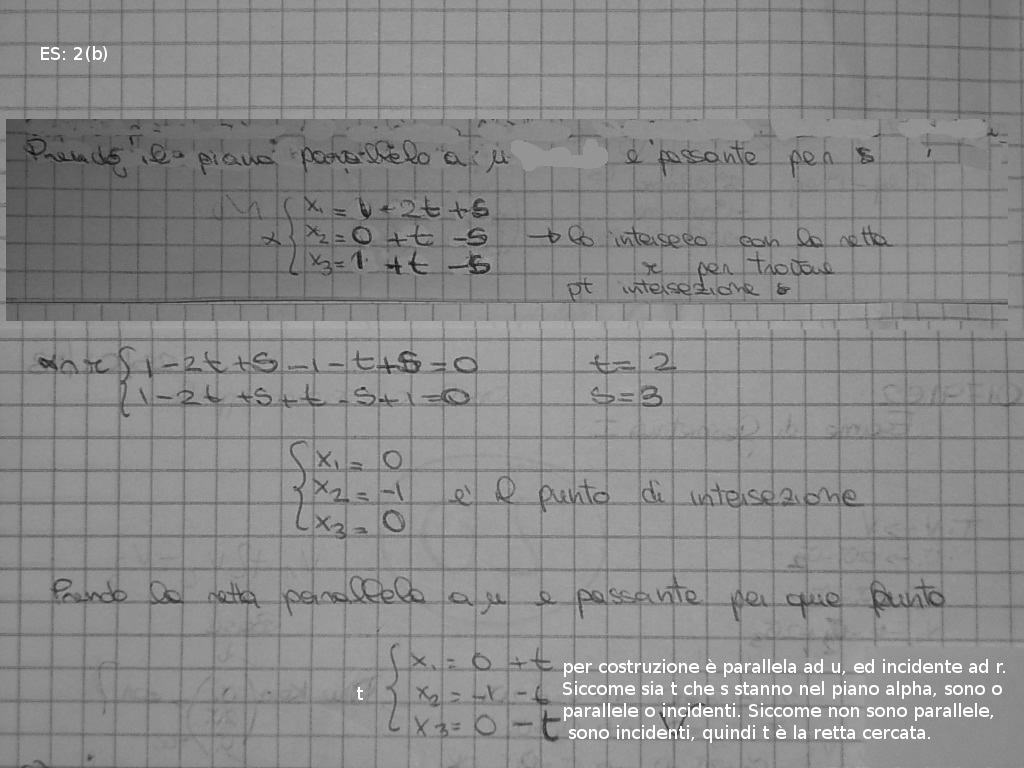 ES: 2(b)
Prendo il piano parallelo a u e passante per s
α { x₁ = 1 - 2t + s
x₂ = 0 + t - s → lo interseco con la retta
x₃ = 1 + t - s r per trovare
pt intersezione
α∩r { 1 - 2t + s - 1 - t + s = 0 t = 2
1 - 2t + s + t - s + 1 = 0 s = 3
{ x₁ = 0
x₂ = -1 è il punto di intersezione
x₃ = 0
Prendo la retta parallela a u e passante per que punto
t { x₁ = 0 + t
x₂ = -1 - t
x₃ = 0 - t
per costruzione è parallela ad u, ed incidente ad r.
Siccome sia t che s stanno nel piano alpha, sono o
parallele o incidenti. Siccome non sono parallele,
sono incidenti, quindi t è la retta cercata.